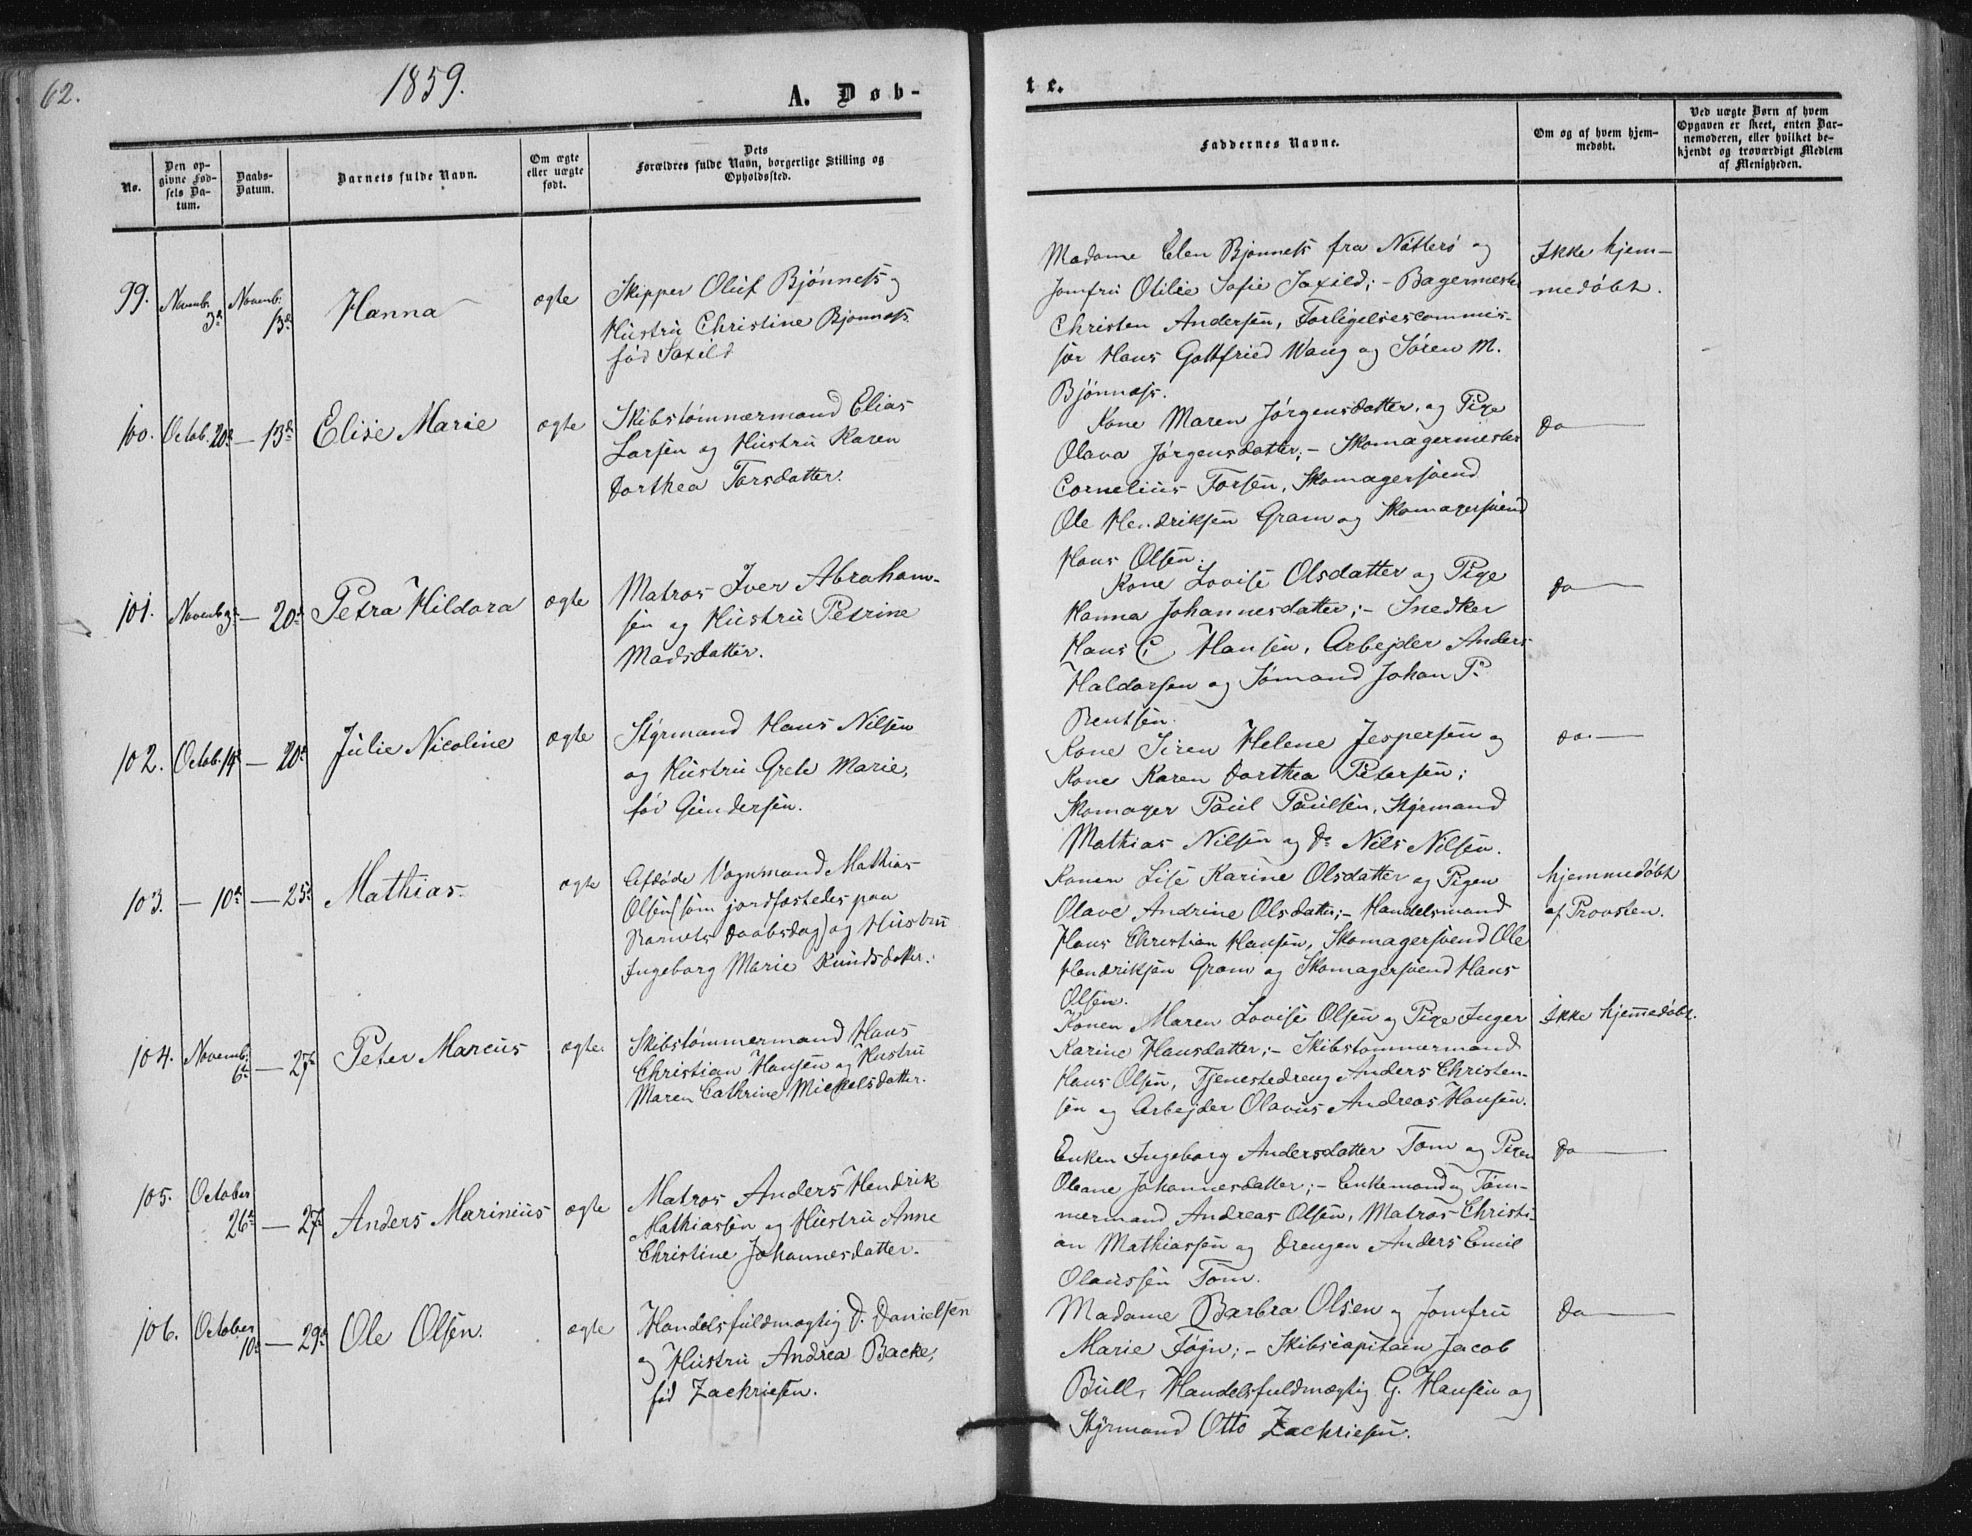 62.
1859.
A. Døb-
No.
Den op-
givne Fød-
sels Da-
tum.
Daabs-
Datum.
Barnets fulde Navn.
Om ægte
eller uægte
født.
Dets
Forældres fulde Navn, borgerlige Stilling og
Opholdssted.
99.
Novemb. 3d
Novemb. 13d
Hanna
ægte
Skipper Oluf Bjønness og
Hustru Christine Bjønness
fød Saxild
100.
Octob. 20d — 13d
Elise Marie
ægte
Skibstømmermand Elias
Larsen og Hustru Karen
Dorthea Torsdatter.
101.
Novemb 3d — 20d
Petra Hildora
ægte
Matros Iver Abraham-
sen og Hustru Petrine
Madsdatter.
102.
Octob. 14d — 20d
Julie Nicoline
ægte
Styrmand Hans Nilsen
og Hustru Grete Marie,
fød Gundersen.
103.
— 10d — 25d
Mathias
ægte
Afdøde Vognmand Mathias
Olsen (som jordfæstedes paa
Barnets Daabsdag) og Hustru
Ingeborg Marie Knudsdatter.
104.
Novemb. 6d — 27d
Peter Marcus
ægte.
Skibstømmermand Hans
Christian Hansen og Hustru
Maren Cathrine Mickelsdatter.
105.
October
26d — 27d
Anders Marinius
ægte
Matros Anders Hendrik
Mathiassen og Hustru Anne
Christine Johannesdatter.
106.
October
10d — 29d
Ole Olsen.
ægte
Handelsfuldmægtig D. Danielsen
og Hustru Andrea Backe,
fød Zachriesen.
te.
Faddernes Navne.
Om og af hvem hjem-
medøbt.
Ved uægte Børn af hvem
Opgaven er skeet, enten Bar-
nemoderen, eller hvilket be-
kjendt og troværdigt Medlem
af Menigheden.
Madame Elen Bjønness fra Nøtterø og
Jomfru Otilie Sofie Saxild; - Bagermester
Christen Andersen, Forligelsescommis-
sær Hans Gottfried Wang og Søren M.
Bjønness.
Ikke hjem-
medøbt.
Kone Maren Jørgensdatter, og Pige
Olava Jørgensdatter; - Skomagermester
Cornelius Torsen, Skomagersvend
Ole Hendriksen Gram og Skomagersvend
Hans Olsen.
Do —
Kone Lovise Olsdatter og Pige
Hanna Johannesdatter; - Snedker
Hans C Hansen, Arbejder Anders
Haldorsen og Sømand Johan P.
Bentsen.
Do —
Kone Siren Helene Jespersen og
Kone Karen Dorthea Petersen;
Skomager Paul Paulsen, Styrmand
Mathias Nilsen og Do Nils Nilsen.
do. —
Konen Lise Karine Olsdatter og Pigen
Olave Andrine Olsdatter; - Handelsmand
Hans Christian Hansen, Skomagersvend Ole
Hendriksen Gram og Skomagersvend Hans
Olsen.
hjemmedøbt
af Provsten.
Konen Maren Lovise Olsen og Pige Inger
Karine Hansdatter; - Skibstømmermand
Hans Olsen, Tjenestedreng Anders Christen-
sen og Arbejder Olavus Andreas Hansen.
Ikke hjemmedøbt.
Enken Ingeborg Andersdatter Tom og Pigen
Oleane Johannesdatter; - Enkemand og Tøm-
mermand Andreas Olsen, Matros Christi-
an Mathiassen og Drengen Anders Emil
Olaussen Tom.
Do —
Madame Barbra Olsen og Jomfru
Marie Føyn; - Skibscapitain Jacob
Bull, Handelsfuldmægtig G. Hansen og
Styrmand Otto Zachriesen.
Do —